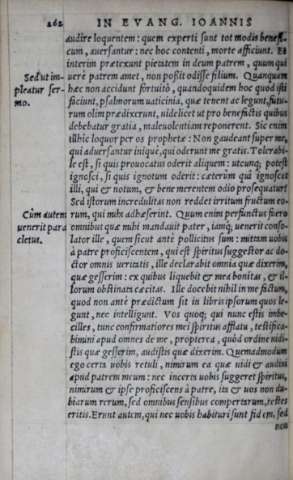 262 IN EVANG. IOANNIS
audire loquentem: quem experti sunt tot modis benefi-
cum, auersantur: nec hoc contenti, morte afficiunt. Et
interim prætexunt pietatem in deum patrem, quum qui
Sed ut im- uere patrem amet, non poßit odisse filium. Quanquam
pleatur ser- hæc non accidunt fortuito, quandoquidem hoc quod isti
mo. faciunt, psalmorum uaticinia, quæ tenent ac legunt, futu-
rum olim prædixerunt, uidelicet ut pro beneficiis quibus
debebatur gratia, maleuolentiam reponerent. Sic enim
illhic loquor per os prophetæ: Non gaudeant super me,
qui aduersantur iniquè, qui oderunt me gratis. Tolerabi-
le est, si quis prouocatus oderit aliquem: utcunque potest
ignosci, si quis ignotum oderit: cæterùm quis ignoscat
illi, qui & notum, & bene merentem odio prosequatur?
Sed istorum incredulitas non reddet irritum fructum eo-
Cùm autem rum, qui mihi adhæserint. Quum enim perfunctus fuero
uenerit para omnibus quæ mihi mandauit pater, iamque uenerit conso-
cletus. lator ille, quem sicut antè pollicitus sum: mittam uobis
à patre proficiscentem, qui est spiritus suggestor ac do-
ctor omnis ueritatis, ille declarabit omnia quæ dixerim,
quæ gesserim: ex quibus liquebit & mea bonitas, & il-
lorum obstinata cæcitas. Ille docebit nihil in me factum,
quod non antè prædictum sit in libris ipsorum quos le-
gunt, nec intelligunt. Vos quoque qui nunc estis imbe-
cilles, tunc confirmatiores mei spiritus afflatu, testifica-
bimini apud omnes de me, propterea, quòd ordine uidi-
stis quæ gesserim, audistis quæ dixerim. Quemadmodum
ego certa uobis retuli, nimirum ea quæ uidi & audiui
apud patrem meum: nec incerta uobis suggeret spiritus,
nimirum & ipse proficiscens à patre, ita & uos non du-
biarum rerum, sed omnibus sensibus compertarum, testes
eritis. Erunt autem, qui nec uobis habituri sunt fidem, sed
non